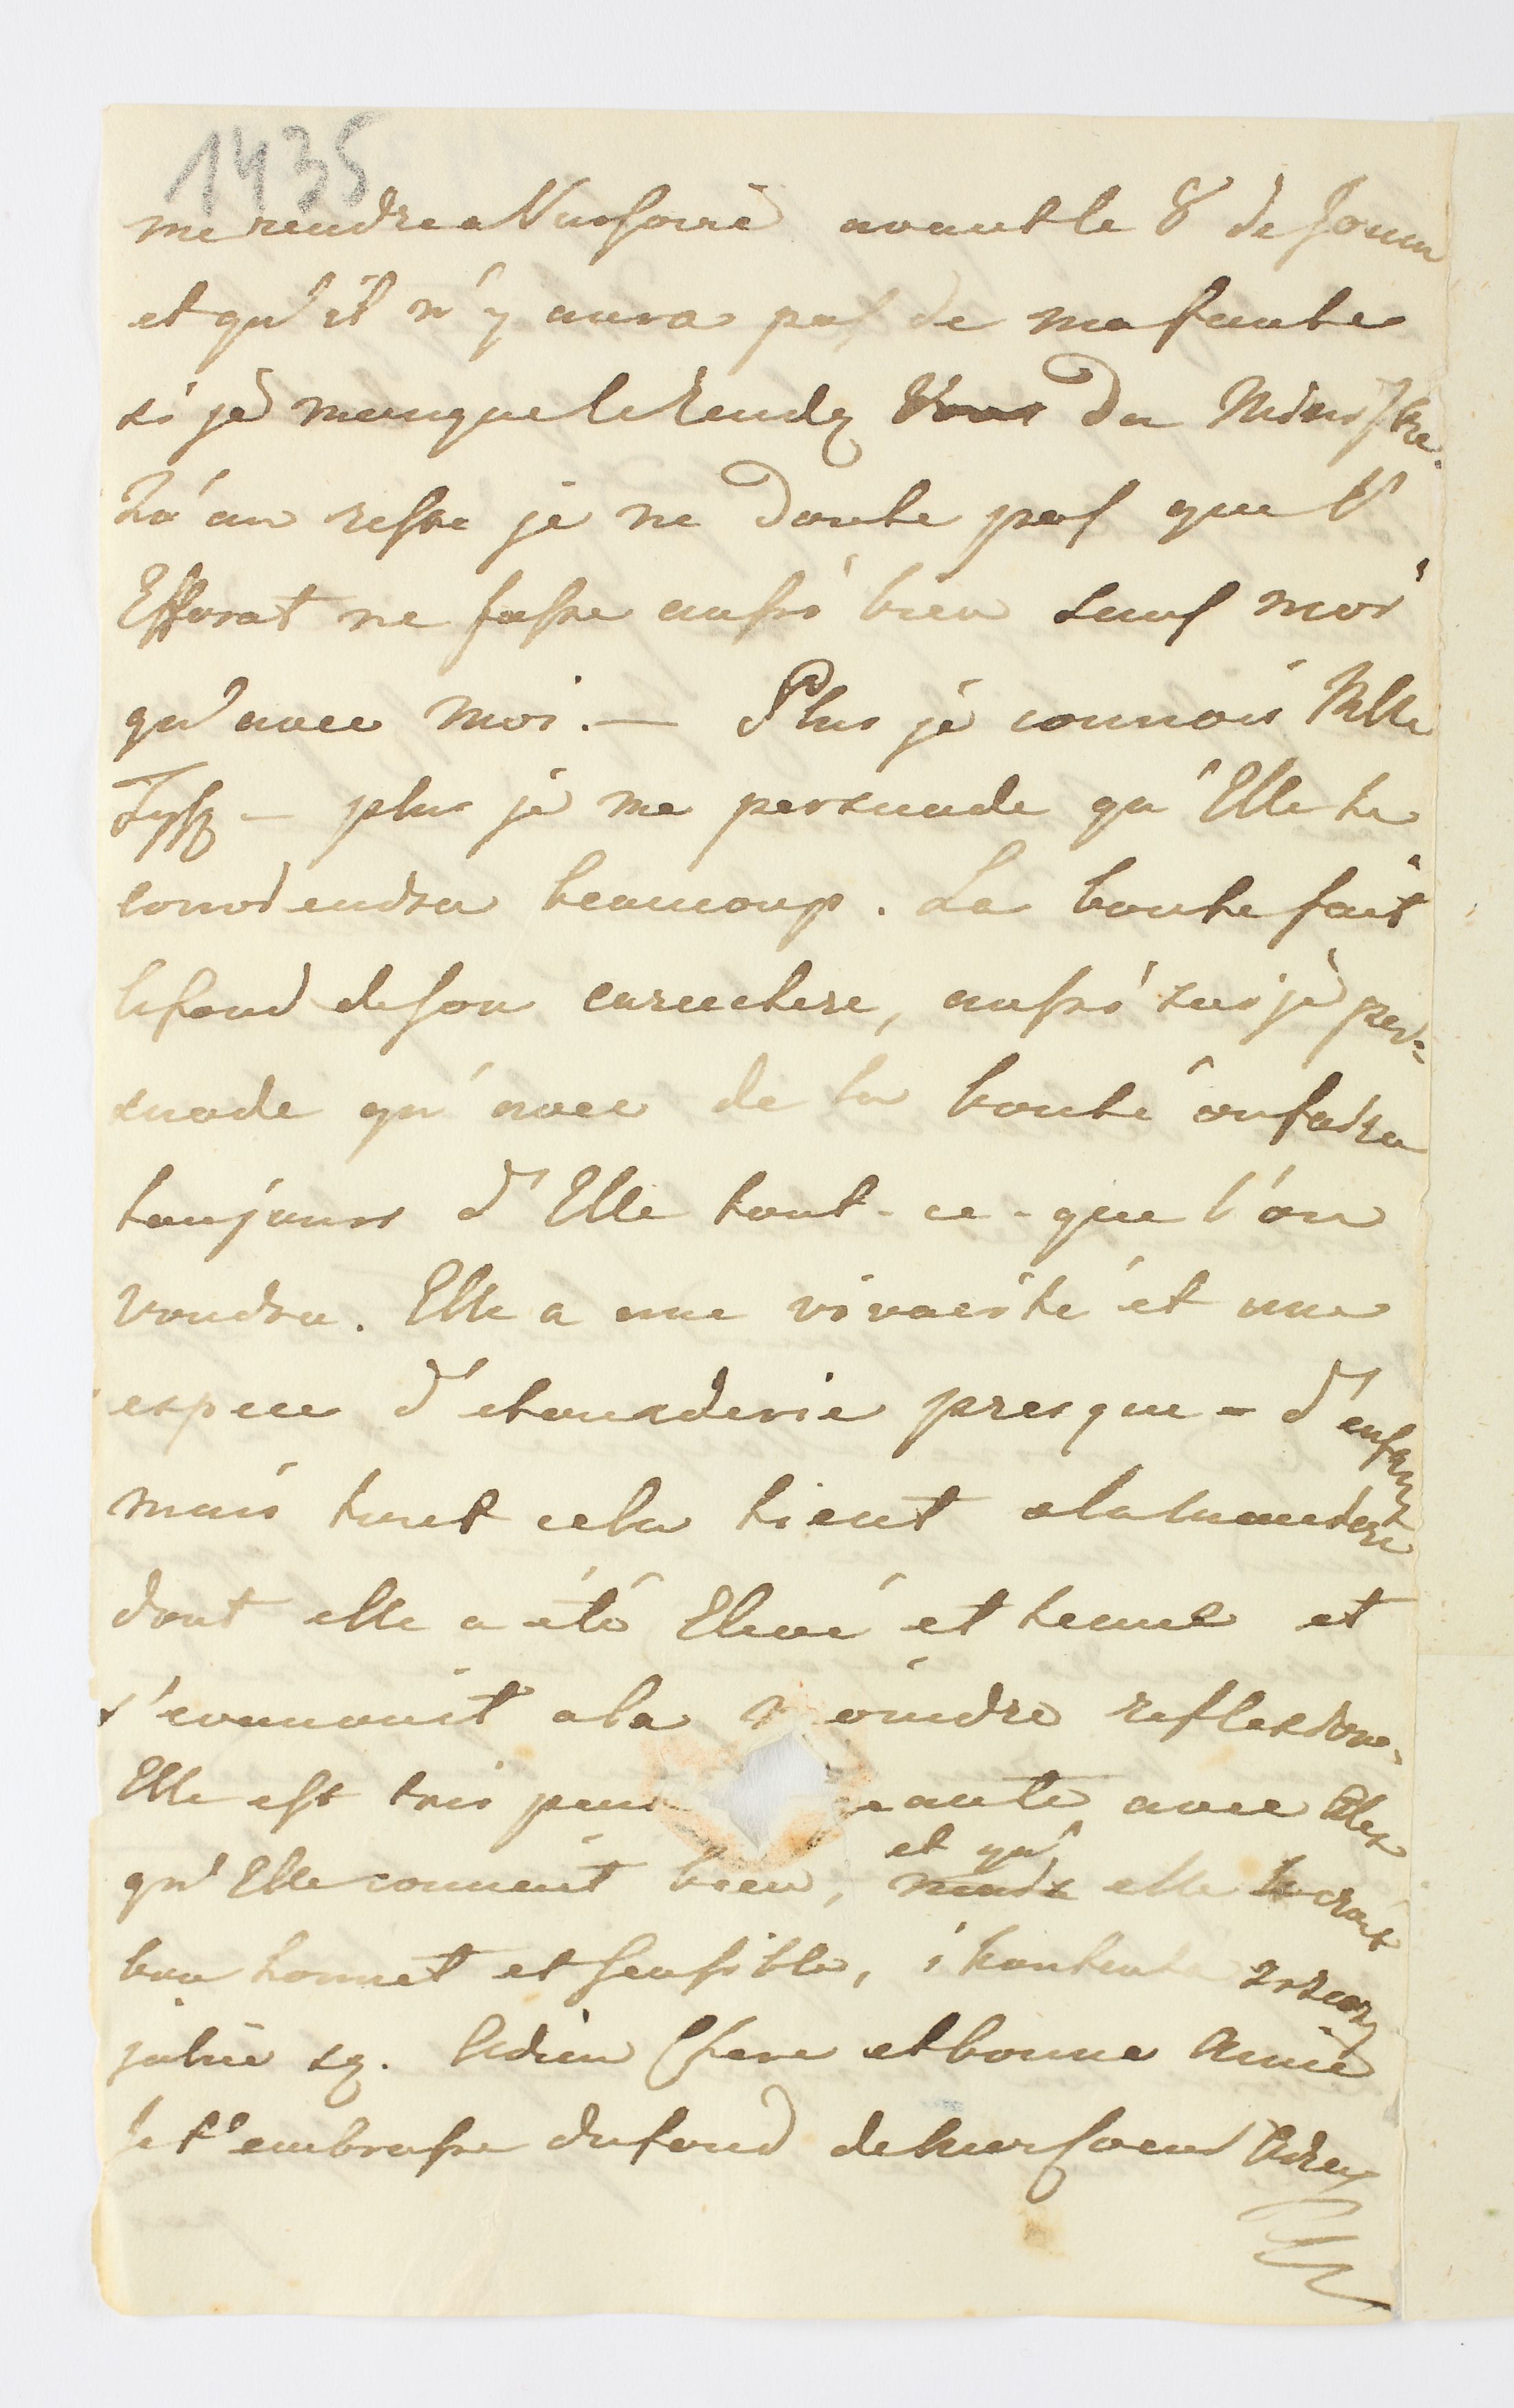 1435
me rendre a avant le 8 de Jouin
et qu'il n'y aura pas de ma faute
si je manque le Rendz Vous du Ministre.
Du reste je ne doute pas que
ne fasse aussi bien sans moi
qu'avec moi. — Plus je connois Mlle
— plus je me persuade qu'Elle te
conviendra beaucoup. La bonté fait
le fond de son caractere, aussi suis je per=
suadé qu'avec de la bonté on faira
toujours d'Elle tout-ce-que l'on
voudra. Elle a une vivacité et une
espece d'etourderie presque-d'enfant
mais tout cela tient a la maniere
dont elle a été Elevé et tenue et
s'evanouit a la moindre reflexion.
Elle est tres peu avec Alex
qu'Elle connait bien, et qu' mais elle le croit
bon honnet et sensible,
Adieu Chere et bonne Amie
Je t'embrasse du fond de mon Coeur